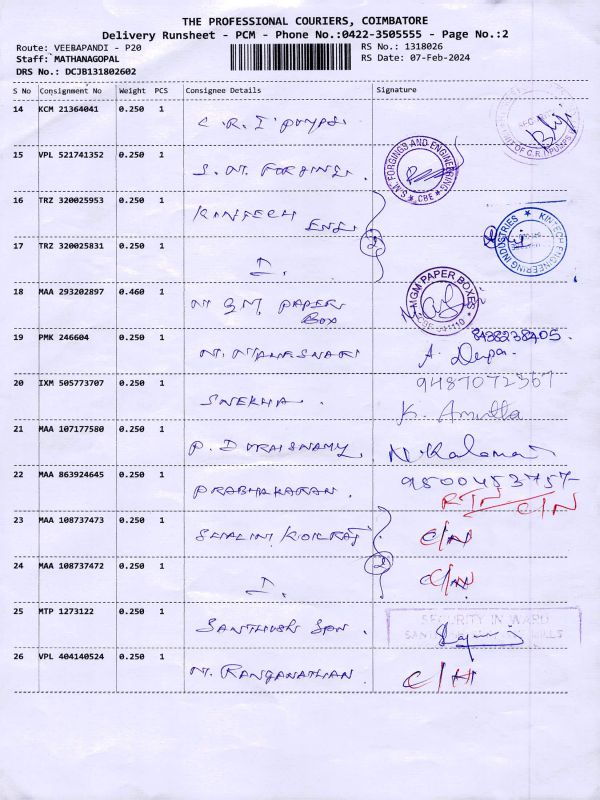 THE PROFESSIONAL COURIERS, COIMBATORE
Delivery Runsheet - PCM - Phone No.:0422-3505555 - Page No.:2
Route: VEERAPANDI - P20
RS No.: 1318026
Staff: MATHANAGOPAL
RS Date: 07-Feb-2024
DRS No.: DCJB131802602
S No Consignment No Weight PCS Consignee Details Signature
14 KCM 21364041 0.250 1 C.R.I PUMPS.
15 VPL 521741352 0.250 1 S.M. FORGINGS. S.M. FORGINGS AND ENGINEERING CBE
16 TRZ 320025953 0.250 1 KINTECH
ENG. KINTECH ENGINEERING INDUSTRIES
17 TRZ 320025831 0.250 1 2
18 MAA 293202897 0.460 1 M G M PAPER
BOX MGM PAPER BOXES
19 PMK 246604 0.250 1 M. MAHESWARI A. Depa.
20 IXM 505773707 0.250 1 SNEKHA. 9487072367
K. Amutha
21 MAA 107177580 0.250 1 P. DURAISWAMY. N. Kalamani
22 MAA 863924645 0.250 1 PRABHAKARAN. 9500453757
RTN C/N
23 MAA 108737473 0.250 1 SHALINI KOILRAJ C/N
24 MAA 108737472 0.250 1 2 C/N
25 MTP 1273122 0.250 1 SANTHOSH SPN. SECURITY IN WARD
26 VPL 404140524 0.250 1 M. RANGANATHAN. C/H